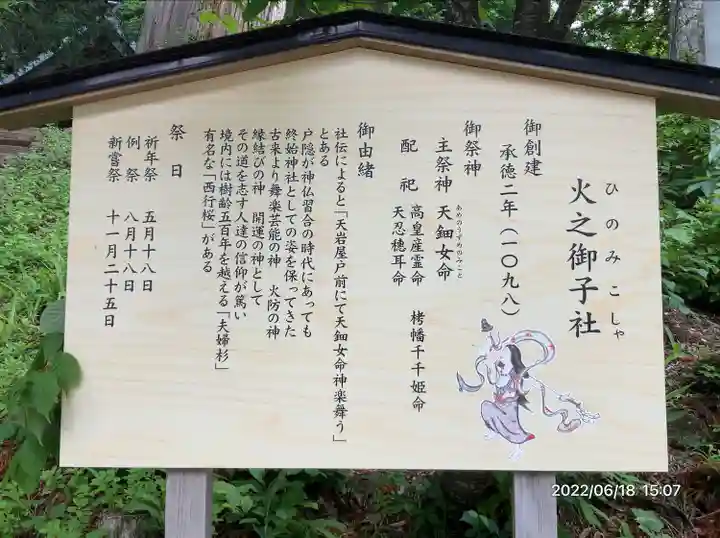 ひのみこしゃ
火之御子社
御創建
承徳二年(一〇九八)
御祭神
あめのうずめのみこと
主祭神 天鈿女命
配祀 高皇産霊命 栲幡千千姫命
天忍穂耳命
御由緒
社伝によると「天岩屋戸前にて天鈿女命神楽舞う」
とある
戸隠が神仏習合の時代にあっても
終始神社としての姿を保ってきた
古来より舞楽芸能の神 火防の神
縁結びの神 開運の神として
その道を志す人達の信仰が篤い
境内には樹齢五百年を越える「夫婦杉」
有名な「西行桜」がある
祭日
祈年祭 五月十八日
例祭 八月十八日
新嘗祭 十一月二十五日
2022/06/18 15:07